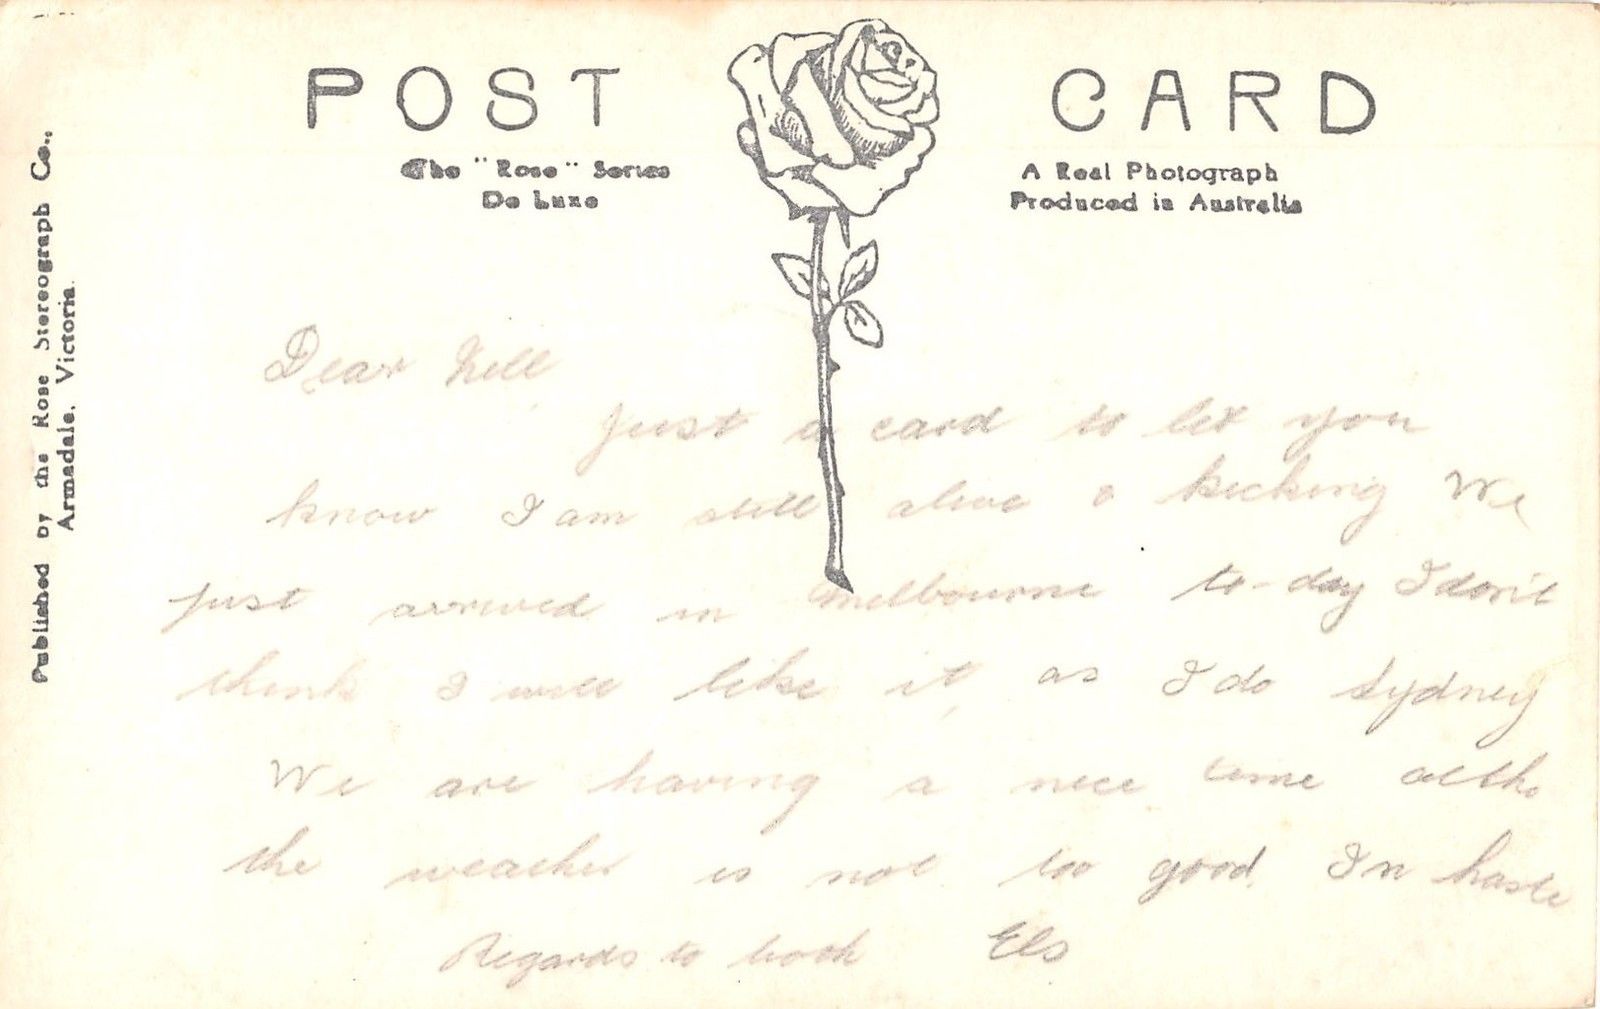 POST CARD
The "Rose" Series
De Luxe
A Real Photograph
Produced in Australia
Published by the Rose Stereograph Co.,
Armadale, Victoria.
Dear Nell
Just a card to let you
know I am still alive & kicking We
just arrived in Melbourne to-day I don't
think I will like it, as I do Sydney
We are having a nice time altho
the weather is not too good. In haste
Regards to both Els